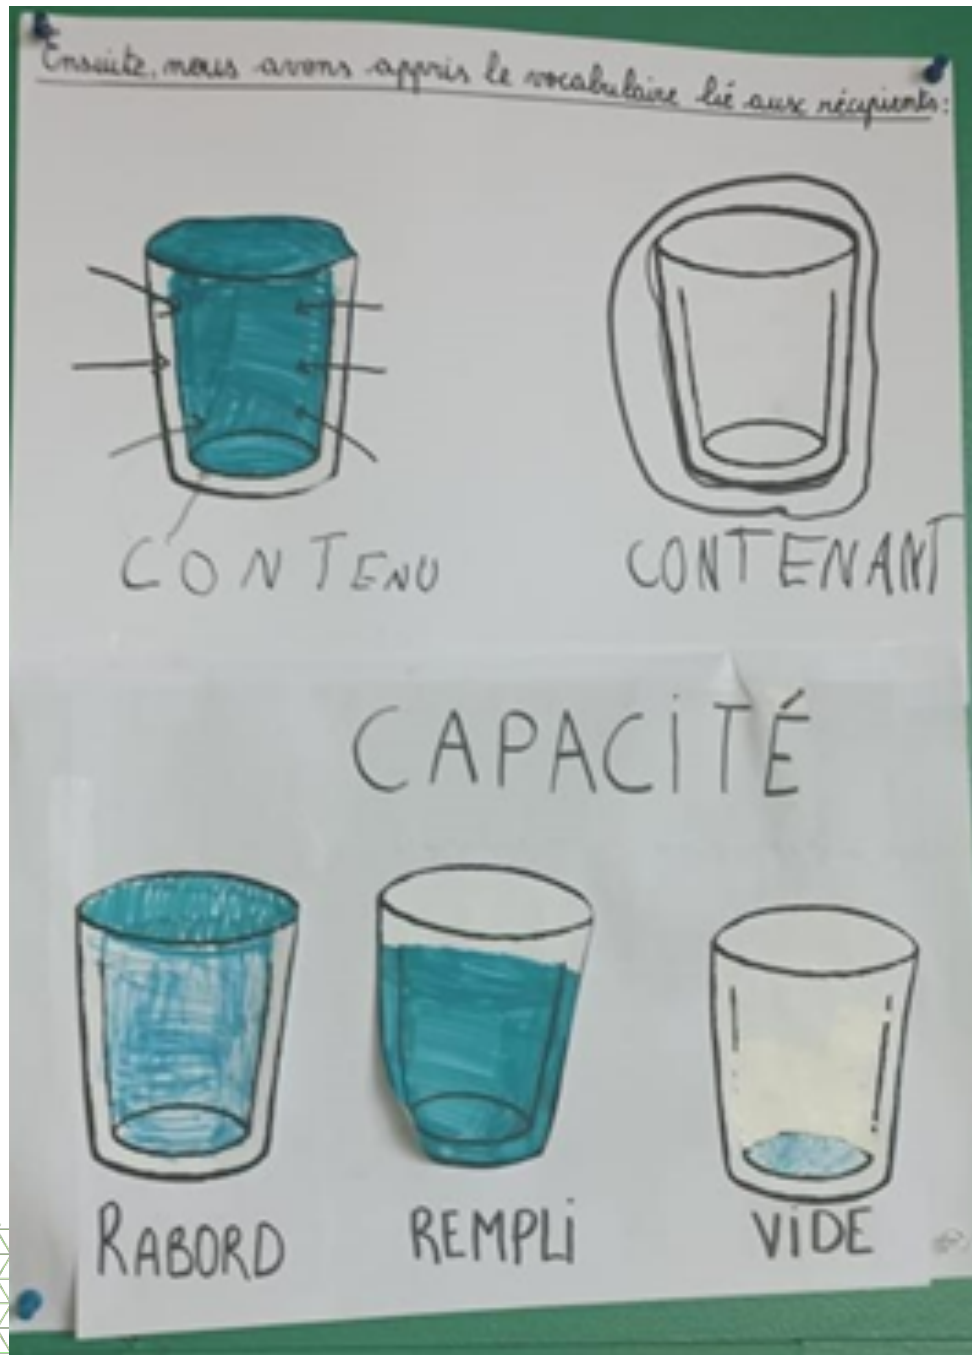 Ensuite, nous avons appris le vocabulaire lié aux récipients :
CONTENU CONTENANT
CAPACITÉ
RABORD REMPLI VIDE